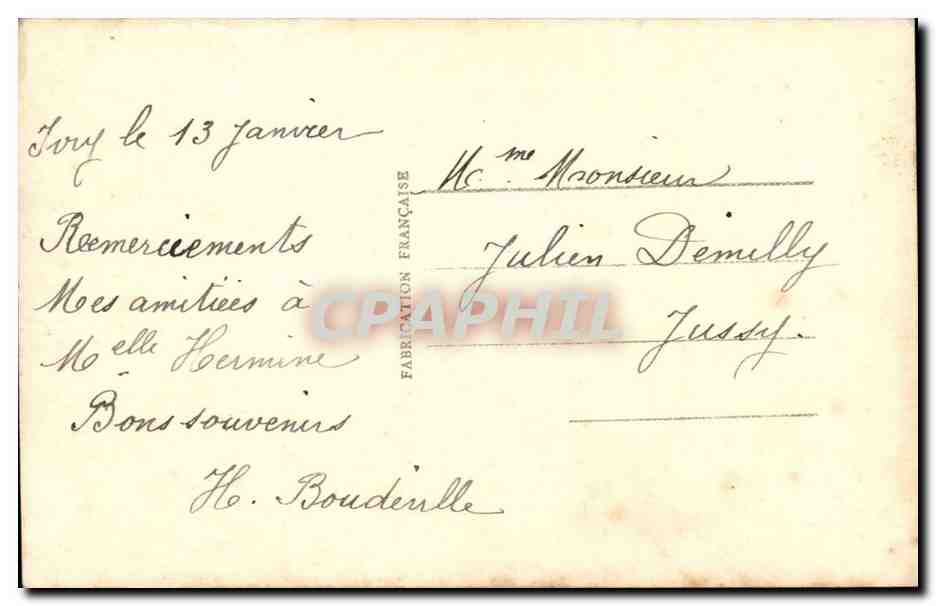 Ivry le 13 Janvier
Remerciements
Mes amitiées à
Melle Hermine
Bons souvenirs
H. Boudeville
FABRICATION FRANÇAISE
Mme Monsieur
Julien Demilly
Jussy.
CPAPHIL